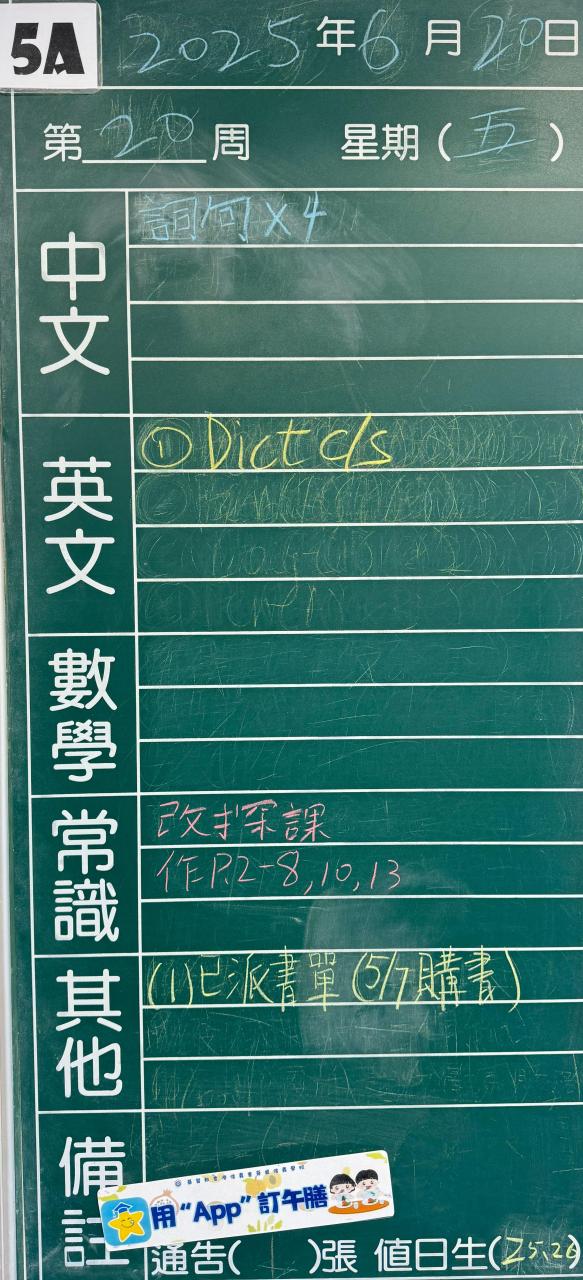 5A
2025年6月20日
第20周 星期(五)
中文
詞句×4
英文
① Dict c/s
數學
常識
改探課
作P.2-8,10,13
其他
(1)已派書單(5/7購書)
備註
用“App”訂午膳
通告( )張 值日生(25,26)